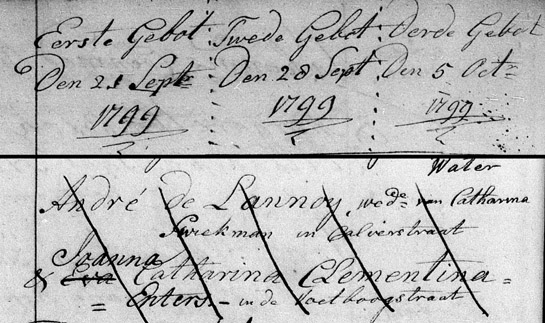 Eerste Gebot Twede Gebot Derde Gebot
Den 21 Septr Den 28 Sept Den 5 Octr
1799 1799 1799
Water
André de Lannoy, wede van Catharina
Swekman in Calverstraat
Joanna
& Eva Catharina Clementina =
= Enters - in de Voetboogstraat